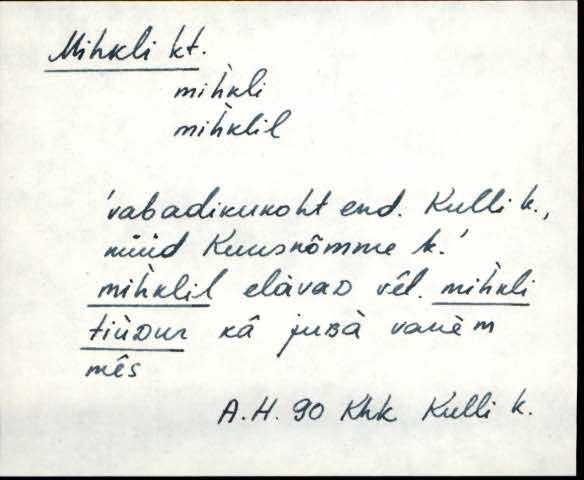 Mihkli kt.
mìhkli
mìhklil
'vabadikukoht end. Kulli k.,
nüüd Kuusnõmme k.'
mìhklil elàvaD vêl. mìhkli
tiùDur kâ juBà vanèm
mês
A.H. 90 Khk Kulli k.